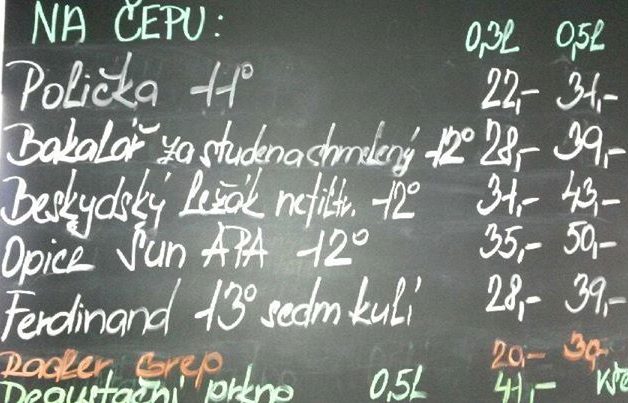 NA ČEPU: 0,3l 0,5l
Polička 11° 22,- 31,-
Bakalář za studena chmelený 12° 28,- 39,-
Beskydský ležák nefiltr. 12° 31,- 43,-
Opice Sun APA 12° 35,- 50,-
Ferdinand 13° sedm kulí 28,- 39,-
Grep 20,- 30,-
Degustační prkno 0,5l 41,-